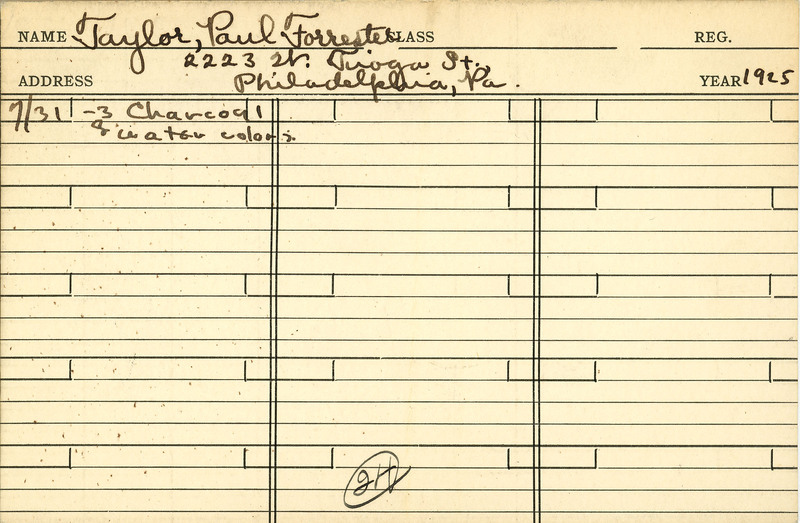 NAME Taylor, Paul Forrester CLASS REG.
2223 W. Tioga St.,
ADDRESS Philadelphia, Pa. YEAR 1925
7/31 -3 Charcoal
8 water colors.
24